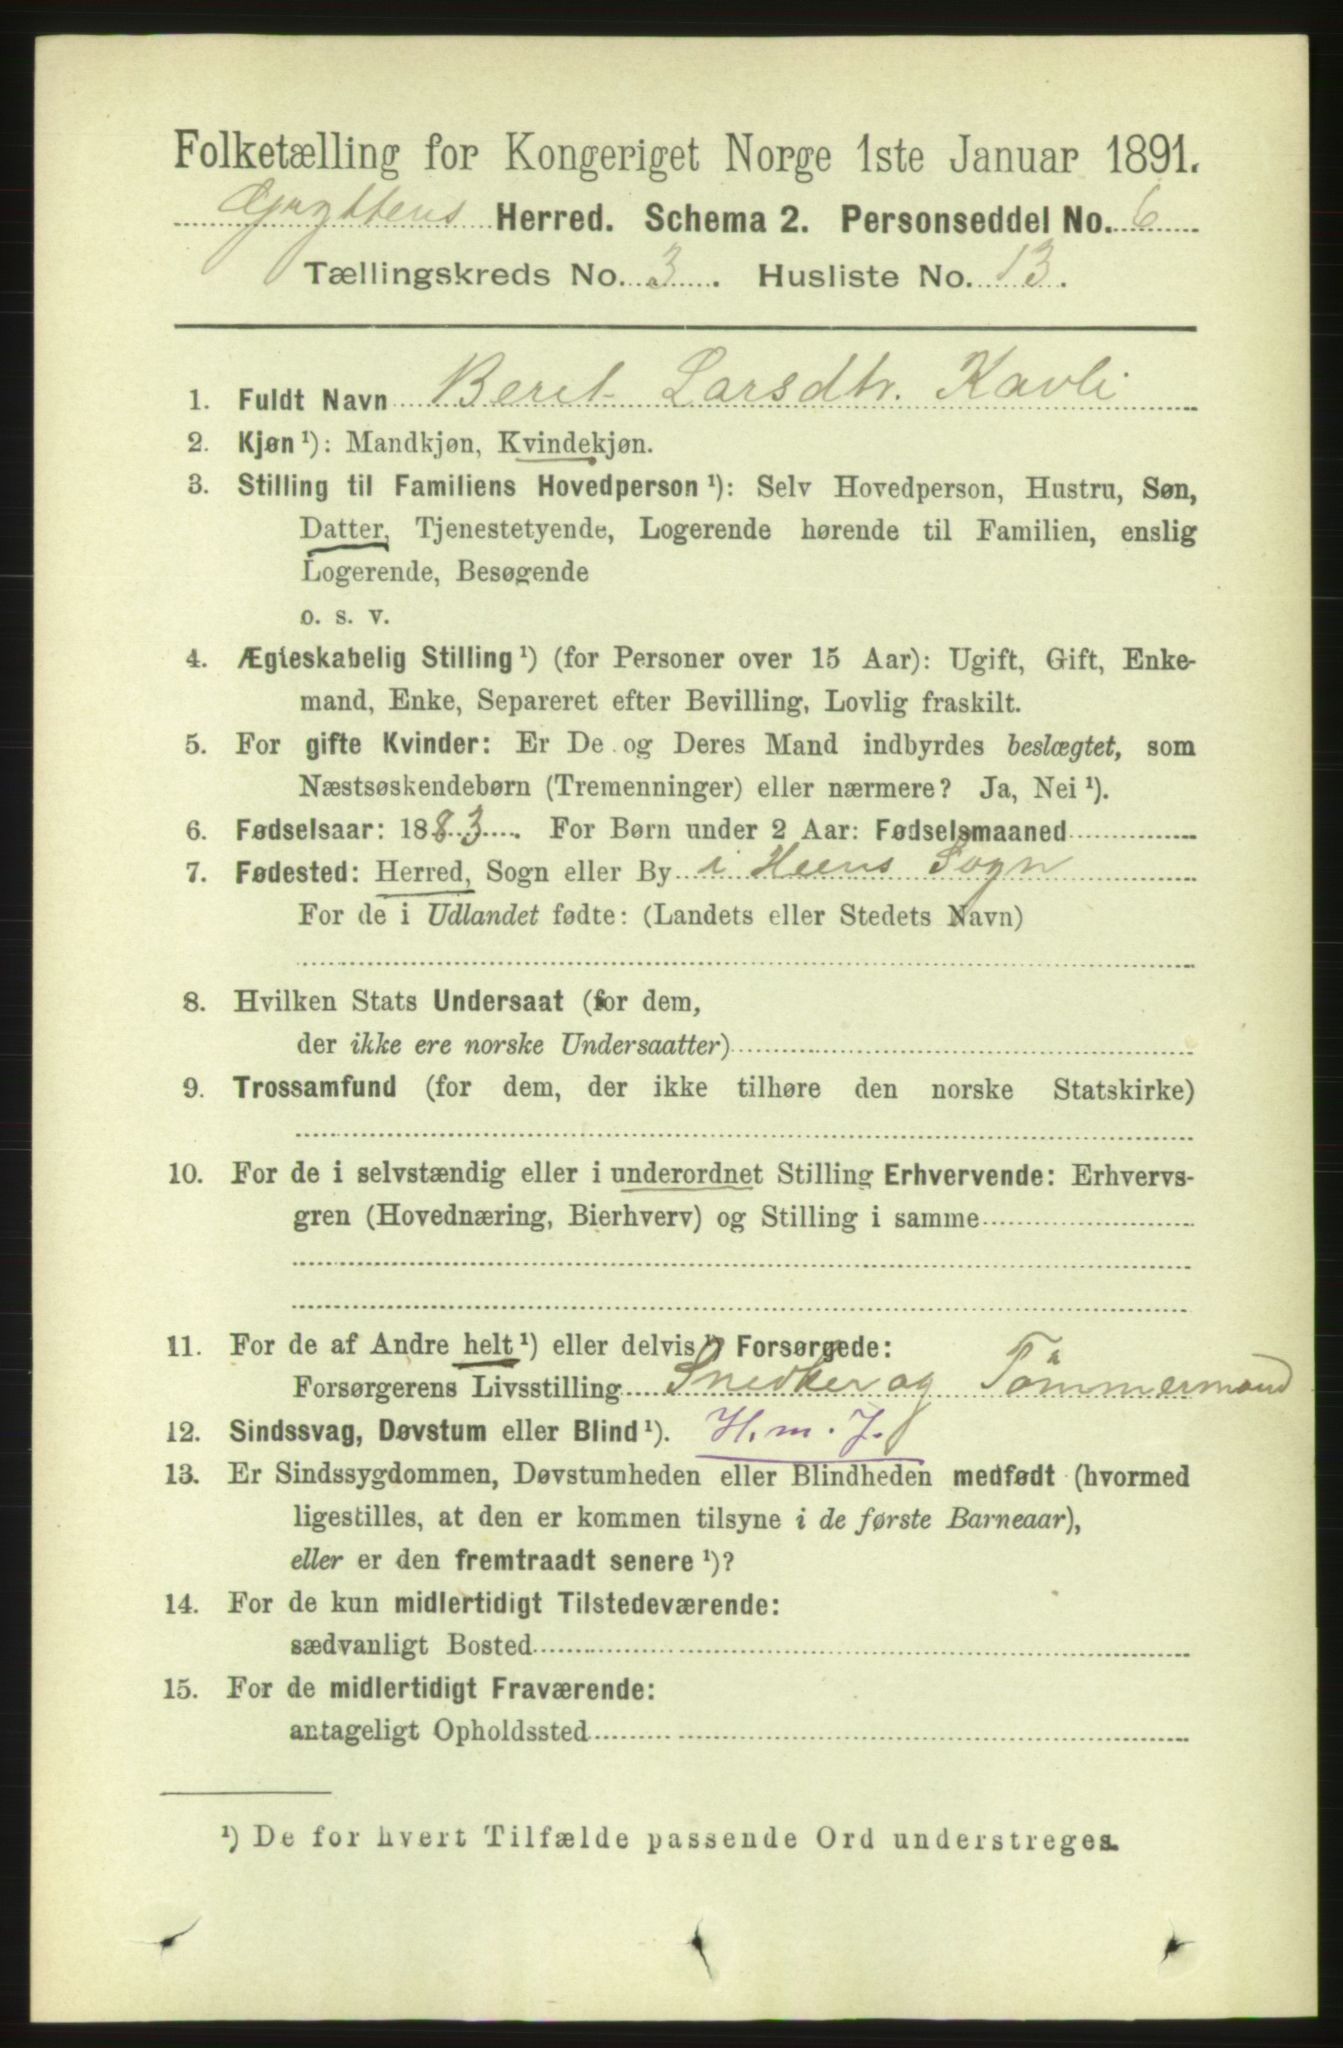 Folketælling for Kongeriget Norge 1ste Januar 1891.
Gryttens Herred. Schema 2. Personseddel No. 6
Tællingskreds No. 3. Husliste No. 13.
1. Fuldt Navn Berit Larsdtr. Kavli
2. Kjøn ¹): Mandkjøn, Kvindekjøn.
3. Stilling til Familiens Hovedperson ¹): Selv Hovedperson, Hustru, Søn,
Datter, Tjenestetyende, Logerende hørende til Familien, enslig
Logerende, Besøgende
o. s. v.
4. Ægteskabelig Stilling ¹) (for Personer over 15 Aar): Ugift, Gift, Enke-
mand, Enke, Separeret efter Bevilling, Lovlig fraskilt.
5. For gifte Kvinder: Er De og Deres Mand indbyrdes beslægtet, som
Næstsøskendebørn (Tremenninger) eller nærmere? Ja, Nei ¹).
6. Fødselsaar: 1883. For Børn under 2 Aar: Fødselsmaaned
7. Fødested: Herred, Sogn eller By i Heens Sogn
For de i Udlandet fødte: (Landets eller Stedets Navn)
8. Hvilken Stats Undersaat (for dem,
der ikke ere norske Undersaatter)
9. Trossamfund (for dem, der ikke tilhøre den norske Statskirke)
10. For de i selvstændig eller i underordnet Stilling Erhvervende: Erhvervs-
gren (Hovednæring, Bierhverv) og Stilling i samme
11. For de af Andre helt ¹) eller delvis ¹) Forsørgede:
Forsørgerens Livsstilling Snedker og Tömmermand
12. Sindssvag, Døvstum eller Blind ¹). H. m. J.
13. Er Sindssygdommen, Døvstumheden eller Blindheden medfødt (hvormed
ligestilles, at den er kommen tilsyne i de første Barneaar),
eller er den fremtraadt senere ¹)?
14. For de kun midlertidigt Tilstedeværende:
sædvanligt Bosted
15. For de midlertidigt Fraværende:
antageligt Opholdssted
¹) De for hvert Tilfælde passende Ord understreges.